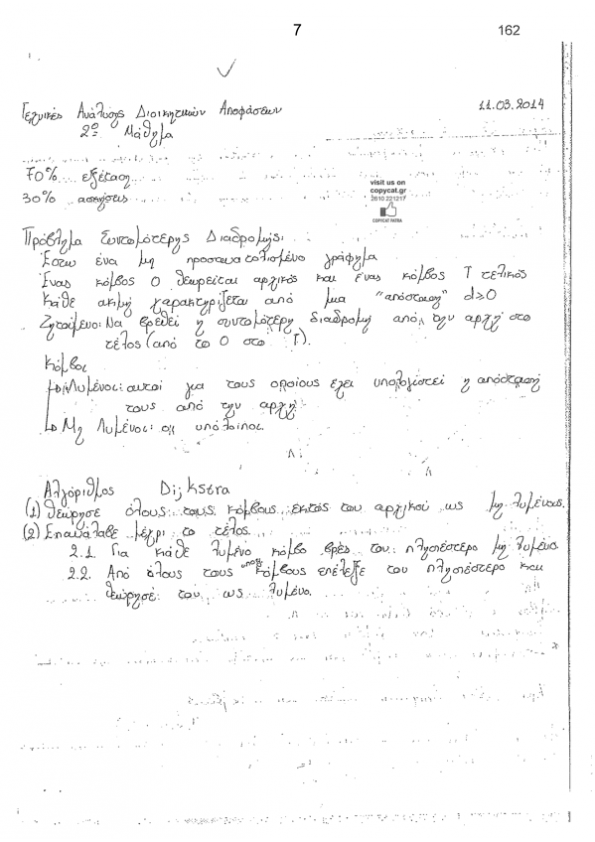 7
162
Τεχνικές Ανάλυσης Διοικητικών Αποφάσεων
11.03.2014
2ο Μάθημα
70% εξέταση
30% ασκήσεις
visit us on
copycat.gr
2610 221217
COPYCAT PATRA
Πρόβλημα Συντομότερης Διαδρομής:
Έστω ένα μη προσανατολισμένο γράφημα
Ένας κόμβος Ο θεωρείται αρχικός και ένας κόμβος Τ τελικός
Κάθε ακμή χαρακτηρίζεται από μια "απόσταση" d≥0
Ζητούμενο: Να βρεθεί η συντομότερη διαδρομή από την αρχή στο
τέλος (από το Ο στο Τ).
Κόμβοι
Λυμένοι: αυτοί για τους οποίους έχει υπολογιστεί η απόσταση
τους από την αρχή
Μη Λυμένοι: οι υπόλοιποι.
Αλγόριθμος Dijkstra
(1) Θεώρησε όλους τους κόμβους εκτός του αρχικού ως μη λυμένους.
(2) Επανάλαβε μέχρι το τέλος
2.1. Για κάθε λυμένο κόμβο βρες τον πλησιέστερο μη λυμένο
2.2. Από όλους τους κόμβους επέλεξε τον πλησιέστερο και
θεώρησέ τον ως λυμένο.